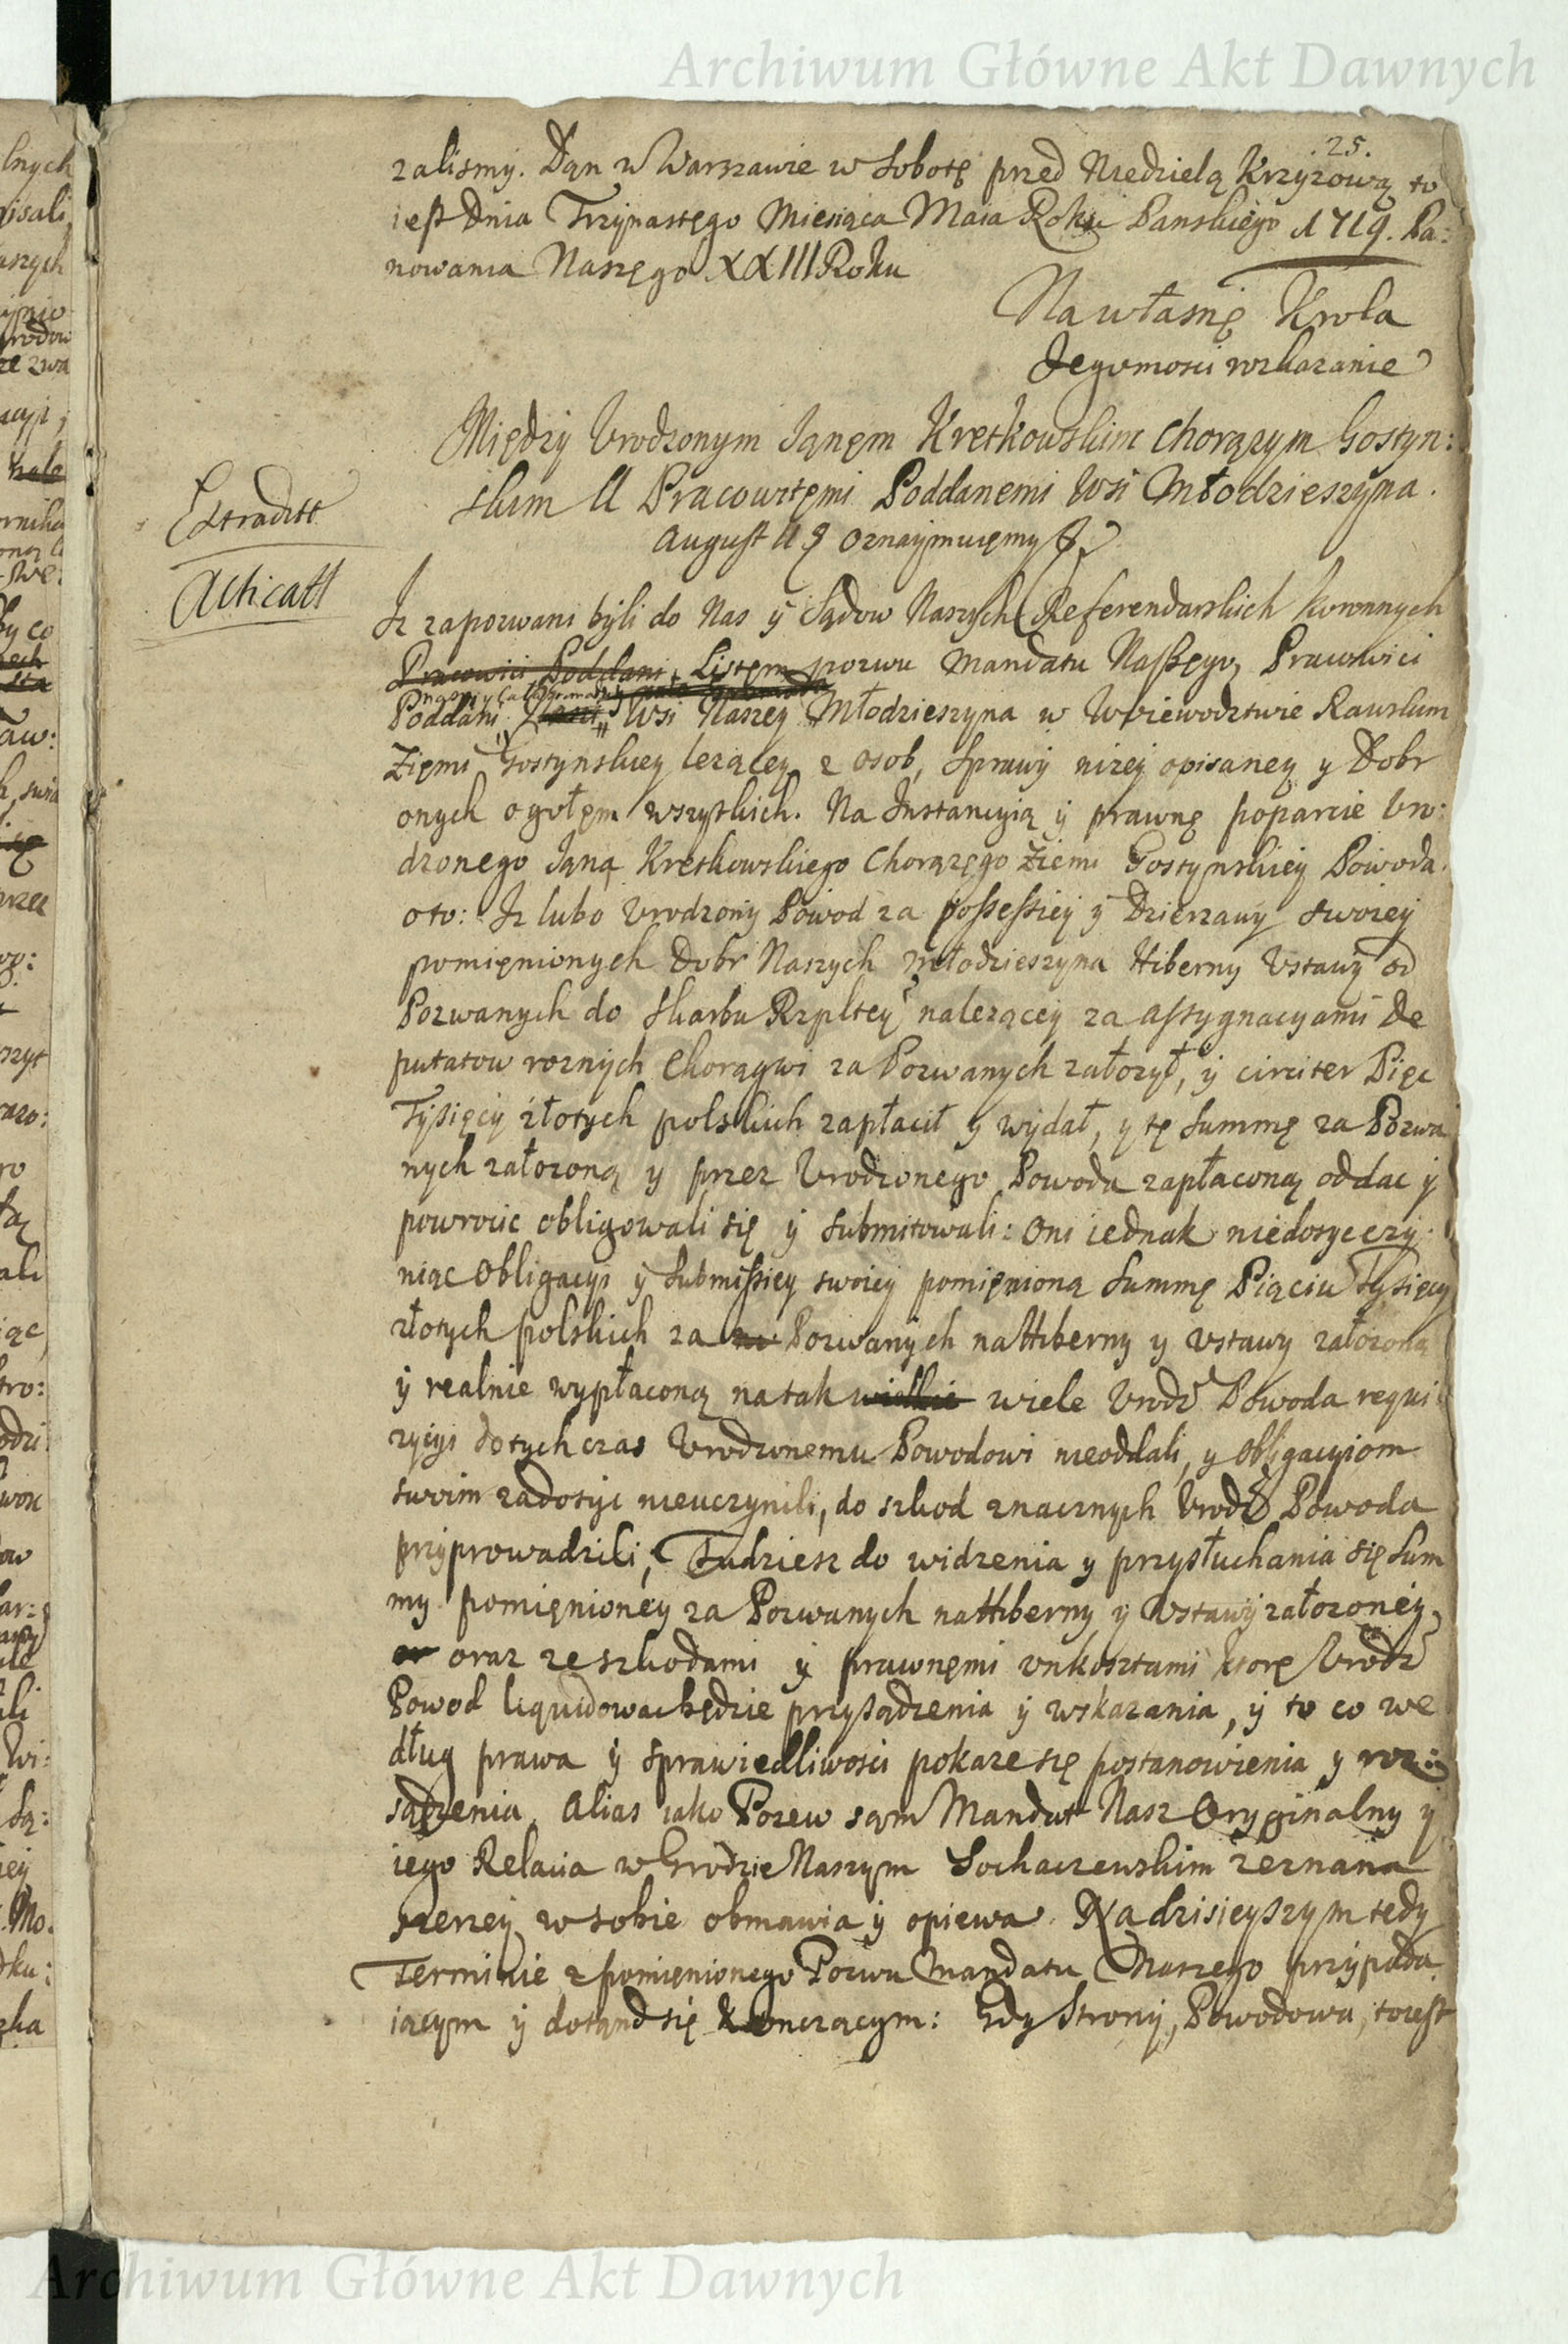 Archiwum Główne Akt Dawnych
.25.
zalismy. Dąn w Warszawie w Sobotę przed Niedzielą Krzyzową to
iest Dnia Trzynastego Miesiąca Maia Roku Panskiego 1719. Pa:
nowania Naszęgo XXIII Roku
Na własnę Krola
Jegomosci rozkazanie
Między Urodzonym Jąnęm Kretkowskim Chorązym Gostyn:
skim A Pracowitęmi Poddanemi Wsi Młodzieszyna.
August II oznaymuięmy
Extraditt
Acticatt
Iz zapozwani byli do Nas y Sądow Naszych Referendarskich koronnych
Pracowici Poddani, Listęm pozwu Mandatu Naszęgo, Pracowici
Poddani Nasi Wsi Naszey Młodzieszyna w Woiewodztwie Rawskim
Zięmi Gostynskiey lezącey z osob, Sprawy nizey opisaney y Dobr
onych ogołęm wszystkich. Na Instancyią y prawnę poparcie Uro:
dzonego Jąną Kretkowskiego Chorązęgo Ziemi Gostynskiey Powoda.
oto: Iz lubo Urodzony Powod za possessiey y Dzierzawy swoiey
pomięnionych Dobr Naszych Młodzieszyna Hiberny Ustawy od
Pozwanych do skarbu Rzpltey nalezącey za assygnacyami De
putatow roznych Chorągwi za Pozwanych załozył, y circiter Pięc
Tysięcy złotych polskich zapłacił y wydał, y tę Summę za Pozwa
nych załozoną y przez Urodzonego Powoda zapłaconą oddac y
powrocic obligowali się y submitowali: Oni iednak niedosyc czy:
niąc Obligacyi y Submissiey swoiey pomięnioną Summę Piąciu Tysięcy
złotych polskich za na Pozwanych na Hiberny y Ustawy załozoną
y realnie wypłaconą na tak wielkie wiele Urodz Powoda requi
zycyi dotych czas Urodzonemu Powodowi nieoddali, y Obligacyiom
swoim zadosyc nieuczynili, do szkod znacznych Urodz Powoda
przyprowadzili; Tudziesz do widzenia y przysłuchania się Sum
my pomięnioney za Pozwanych na Hiberny y Ustawy załozoney,
or oraz ze szkodami y prawnęmi unkosztami ktorę Urodz
Powod liquidowac będzie przysądzenia y wskazania, y to co we
dług prawa y sprawiedliwosci pokaze się postanowienia y roz:
sądzenia, Alias iako Pozew sąm Mandat Nasz Oryginalny y
iego Relacia w Grodzie Naszym Sochaczewskim zeznana
szerzey w sobie obmawia y opiewa. Na dzisieyszym tedy
Terminie z pomięnionego Pozwu Mandatu Naszego przypada
iącym y dotąnd się konczącym: Gdy Strony, Powodowa, toiest
Archiwum Główne Akt Dawnych